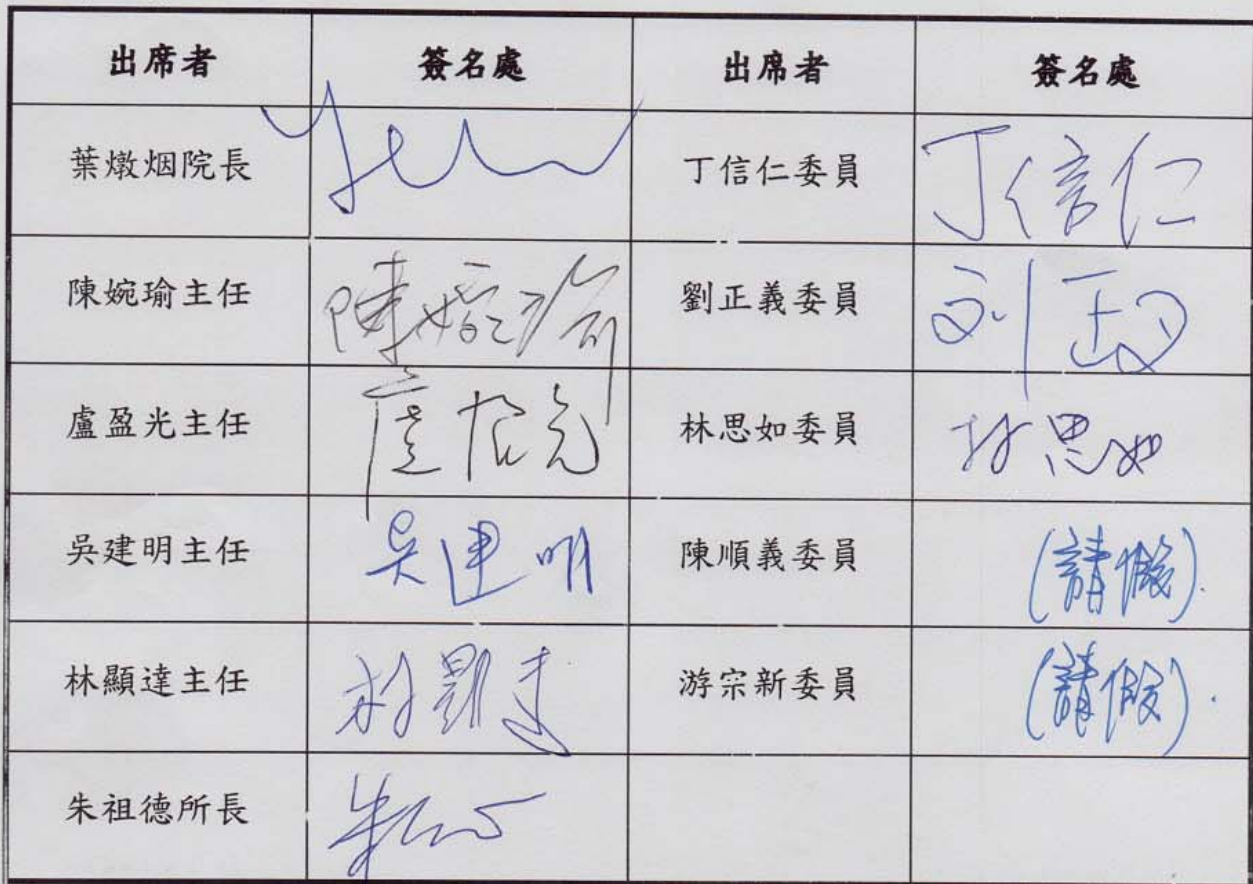 出席者 簽名處 出席者 簽名處
葉燉烟院長 Yeh 丁信仁委員 丁信仁
陳婉瑜主任 陳婉瑜 劉正義委員 刘正义
盧盈光主任 盧盈光 林思如委員 林思如
吳建明主任 吳建明 陳順義委員 (請假).
林顯達主任 林顯達 游宗新委員 (請假).
朱祖德所長